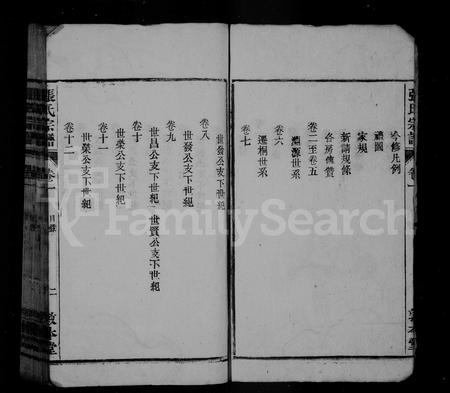 張氏宗譜
卷一
今修凡例
禮圖
家規
新請規條
各房傳贊
卷二至卷五
淵源世系
卷六
遷桐世系
卷七
敦本堂
世發公支下世紀
卷八
世發公支下世紀
卷九
世昌公支下世紀 世賢公支下世紀
卷十
世榮公支下世紀
卷十一
世榮公支下世紀
卷十二
張氏宗譜
卷一
目錄
二
敦本堂
FamilySearch